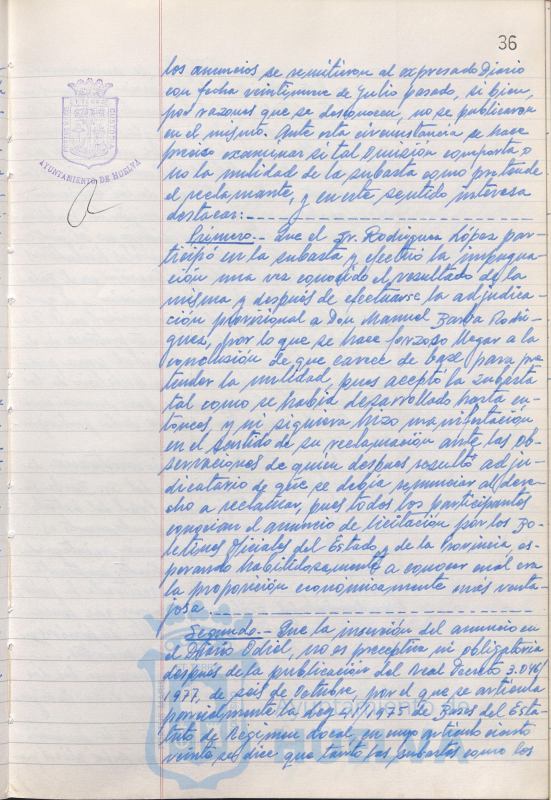 36
AYUNTAMIENTO DE HUELVA
los anuncios se remitieron al expresado Diario
con fecha veintinueve de Julio pasado, si bien,
por razones que se desconocen, no se publicaron
en el mismo. Ante esta circunstancia se hace
preciso examinar si tal omisión comporta o
no la nulidad de la subasta como pretende
el reclamante, y en este sentido interesa
destacar:
Primero.- Que el Sr. Rodríguez López par-
ticipó en la subasta y efectuó la impugna-
ción una vez conocido el resultado de la
misma y después de efectuarse la adjudica-
ción provisional a Don Manuel Barba Rodri-
guez, por lo que se hace forzoso llegar a la
conclusión de que carece de base para pre-
tender la nulidad, pues aceptó la subasta
tal como se había desarrollado hasta en-
tonces, y ni siquiera hizo manifestación
en el sentido de su reclamación ante las ob-
servaciones de quien después resultó adju-
dicatario de que se debía renunciar al dere-
cho a reclamar, pues todos los participantes
conocían el anuncio de licitación por los Bo-
letines Oficiales del Estado y de la Provincia, es-
perando habilidosamente a conocer cual era
la proposición económicamente más venta-
josa
Segundo.- Que la inserción del anuncio en
el Diario Odiel, no es preceptiva ni obligatoria
después de la publicación del Real Decreto 3.046/
1977, de seis de Octubre, por el que se articula
parcialmente la Ley 41/1975 de Bases del Esta-
tuto de Régimen Local, en cuyo artículo ciento
veinte, se dice que tanto las subastas como los
Ayuntamiento de
HUELVA